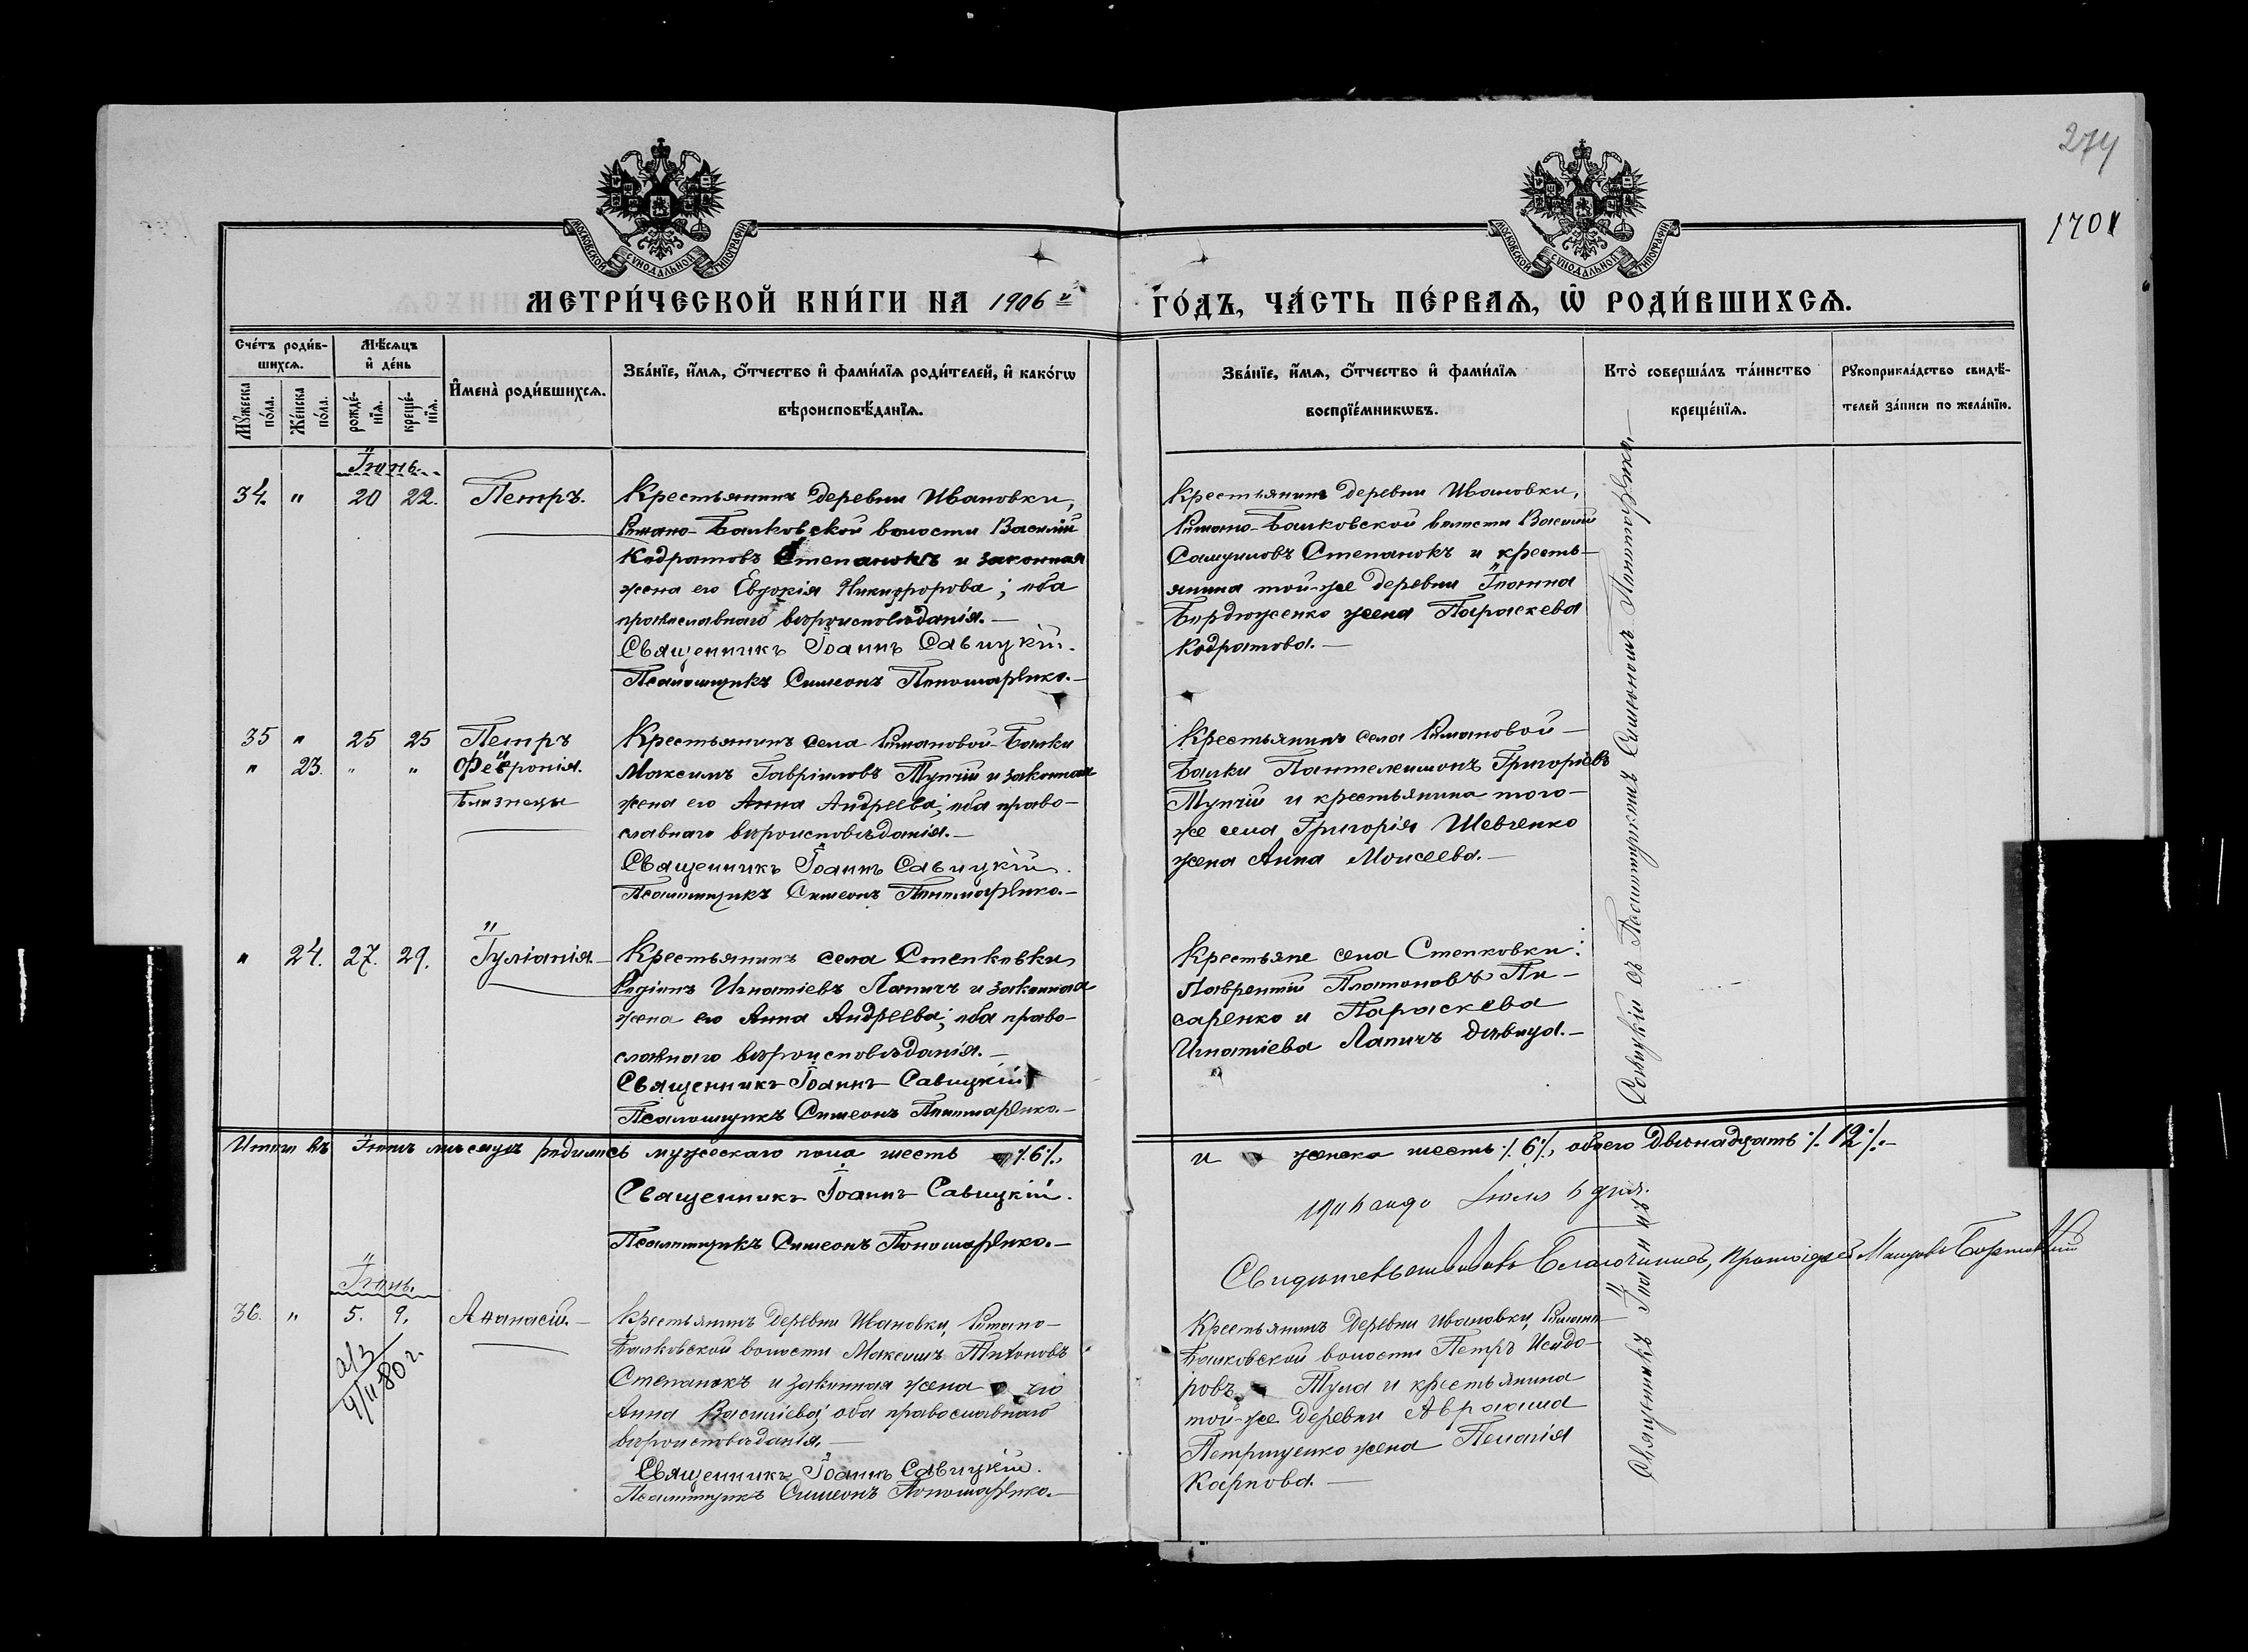 274
1701
МОСКОВСКОЙ СѴНОДАЛЬНОЙ ТИПОГРАФІИ
МОСКОВСКОЙ СѴНОДАЛЬНОЙ ТИПОГРАФІИ
МЕТРИ́ЧЕСКОЙ КНИ́ГИ НА 1906й ГО́ДЪ, ЧА́СТЬ ПЕ́РВАѦ, Ѡ҆ РОДИ́ВШИХСѦ.
Сче́тъ роди́в-
шихсѧ.
Мꙋ́жеска по́ла.
Же́нска по́ла.
Мѣ́сѧцъ
и҆ де́нь
рожде́-
нїѧ.
креще́-
нїѧ.
И҆мена̀ роди́вшихсѧ.
Зва́нїе, и҆́мѧ, ѻ҆́тчество и҆ фами́лїѧ роди́телей, и҆ како́гѡ
вѣроисповѣ́данїѧ.
Зва́нїе, и҆́мѧ, ѻ҆́тчество и҆ фами́лїѧ
воспрїе́мникѡвъ.
Кто̀ соверша́лъ та́инство
креще́нїѧ.
Рꙋкоприкла́дство свидѣ́-
телей за́писи по жела́нїю.
Іюнь.
34. " 20 22. Петръ.
Крестьянинъ деревни Ивановки,
Романо-Балковской волости Василій
Кодратовъ Степанокъ и законная
жена его Евдокія Никифорова; оба
православнаго вѣроисповѣданія.—
Священникъ Іоаннъ Савицкій.
Псаломщикъ Симеонъ Пономаренко.—
Крестьянинъ деревни Ивановки,
Романо-Балковской волости Василій
Самуиловъ Степанокъ и кресть-
янина той-же деревни Іоанна
Бордюженко жена Параскева
Кодратова.—
35 " 25 25 Петръ
" 23. " " Февронія.
Близнецы
Крестьянинъ села Романовой-Балки
Максимъ Гавріиловъ Тупчій и законная
жена его Анна Андреева; оба право-
славнаго вѣроисповѣданія.—
Священникъ Іоаннъ Савицкій.
Псаломщикъ Симеонъ Пономаренко.—
Крестьянинъ села Романовой-
Балки Пантелеимонъ Григоріевъ
Тупчій и крестьянина того-
же села Григорія Шевченко
жена Анна Моисеева.—
" 24. 27. 29. Іуліанія.—
Крестьянинъ села Степковки
Родіонъ Игнатіевъ Лапичъ и законная
жена его Анна Андреева; оба право-
славнаго вѣроисповѣданія.—
Священникъ Іоаннъ Савицкій
Псаломщикъ Симеонъ Пономаренко.—
Крестьяне села Степковки:
Лаврентій Платоновъ Пи-
саренко и Параскева
Игнатіева Лапичъ дѣвица.—
Итого въ Іюнѣ мѣсяцѣ родилось мужескаго пола шесть ·/.6·/.,
и женска шесть ·/.6·/., обоего двѣнадцать ·/.12·/.—
Священникъ Іоаннъ Савицкій.
Псаломщикъ Симеонъ Пономаренко.—
1906 года Іюля 6 дня.
Свидѣтельствовалъ Благочинный, Протоіерей
Іюль.
36. " 5. 9. Аѳанасій.—
4/II 80 г.
Крестьянинъ деревни Ивановки, Романо-
Балковской волости Максимъ Тихоновъ
Степанокъ и законная жена его
Анна Василіева; оба православнаго
вѣроисповѣданія.—
Священникъ Іоаннъ Савицкій.
Псаломщикъ Симеонъ Пономаренко.—
Крестьянинъ деревни Ивановки, Романо-
Балковской волости Петръ Исидо-
ровъ Тула и крестьянина
той-же деревни Авраама
Петрищенко жена Пелагія
Карпова.—
Священникъ Іоаннъ Савицкій съ Псаломщикомъ Симеономъ Пономаренко.—